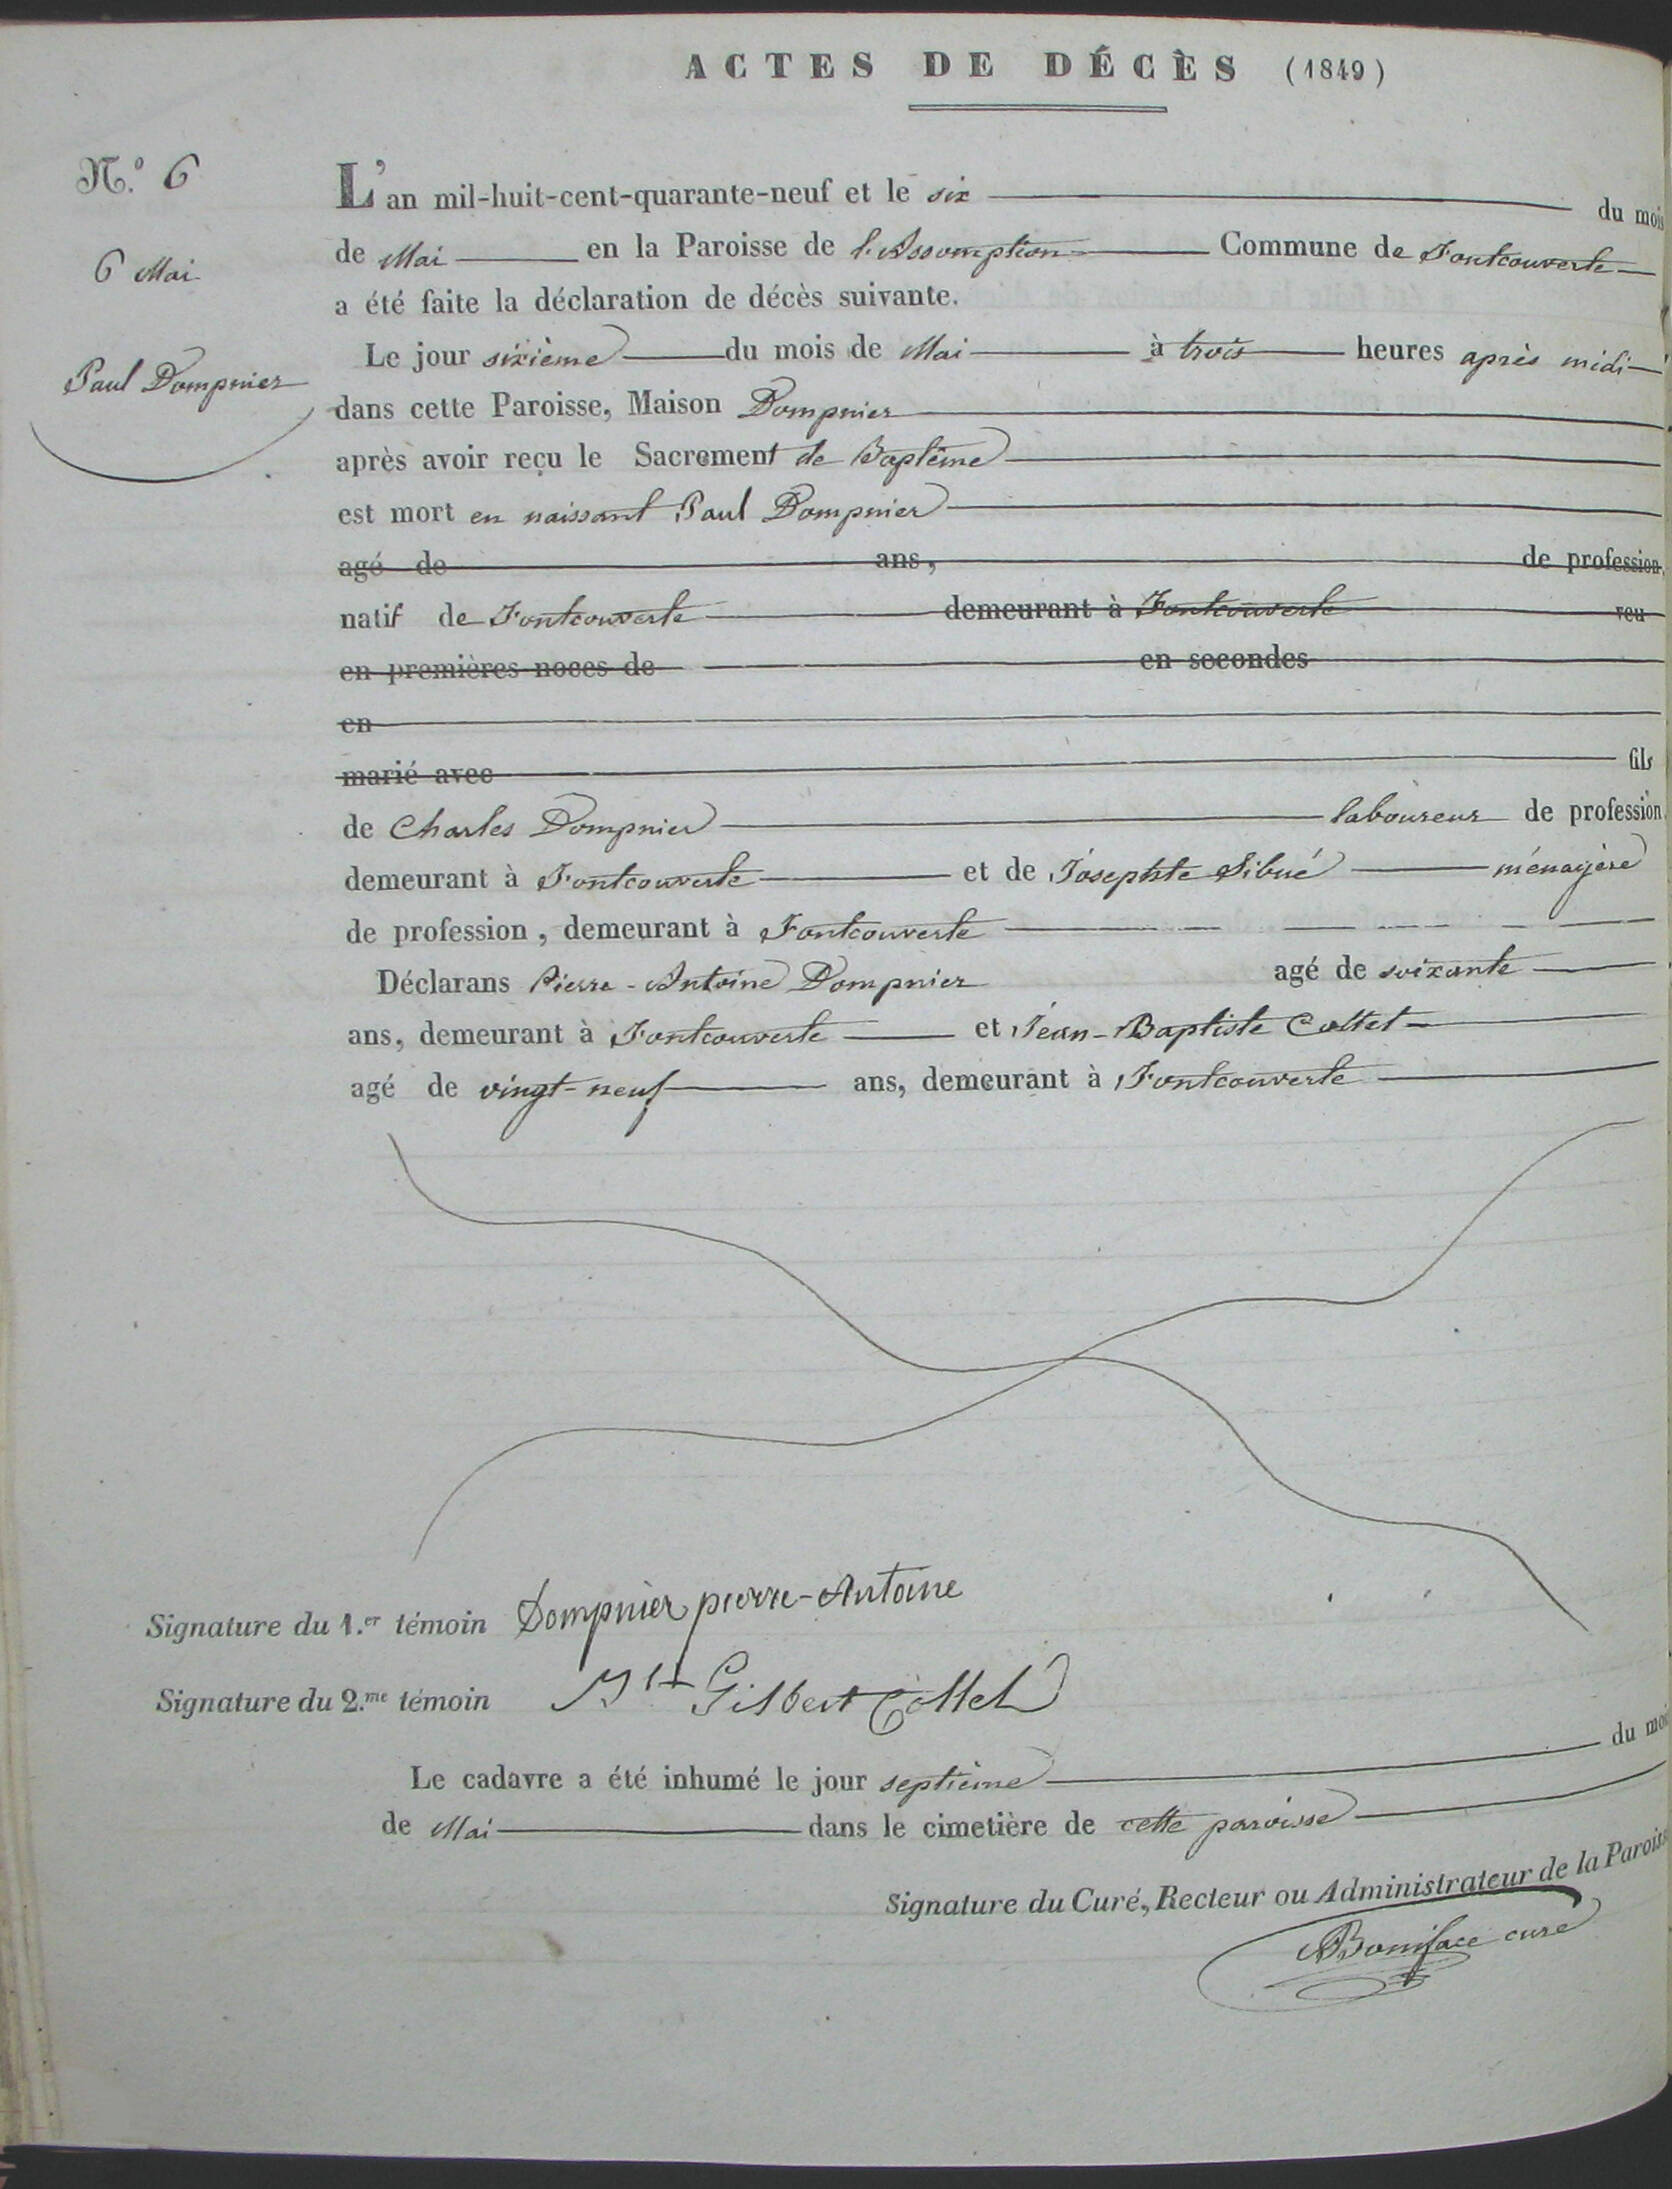 ACTES DE DÉCÈS (1849)
N.º 6
6 Mai
Paul Dompnier
L'an mil-huit-cent-quarante-neuf et le six du mois
de Mai en la Paroisse de l'Assomption Commune de Fontcouverte
a été faite la déclaration de décès suivante.
Le jour sixième du mois de Mai à trois heures après midi
dans cette Paroisse, Maison Dompnier
après avoir reçu le Sacrement de Baptême
est mort en naissant Paul Dompnier
agé de ans, de profession,
natif de Fontcouverte demeurant à Fontcouverte veu
en premières noces de en secondes
en
marié avec fils
de Charles Dompnier laboureur de profession,
demeurant à Fontcouverte et de Josephte Sibué ménagère
de profession, demeurant à Fontcouverte
Déclarans Pierre-Antoine Dompnier agé de soixante
ans, demeurant à Fontcouverte et Jean-Baptiste Collet
agé de vingt-neuf ans, demeurant à Fontcouverte
Signature du 1.er témoin Dompnier pierre-Antoine
Signature du 2.me témoin Gilbert Collet
Le cadavre a été inhumé le jour septième du moi
de Mai dans le cimetière de cette paroisse
Signature du Curé, Recteur ou Administrateur de la Paroiss
Boniface curé